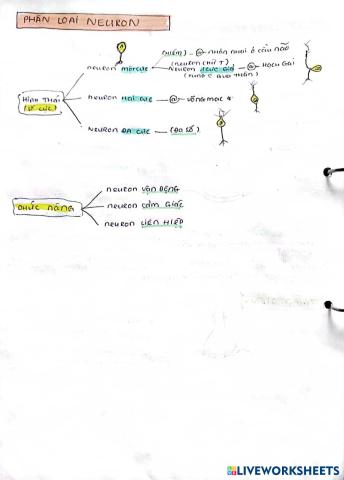 PHÂN LOẠI NEURON
(HIẾM) - @ - NHÂN NHAI Ở CẦU NÃO
NEURON MỘT CỰC
(NEURON CHỮ T)
NEURON ĐƠN CỰC GIẢ - @ - HẠCH GAI
HÌNH THÁI
(SỐ CỰC)
NEURON HAI CỰC - @ - VÕNG MẠC
NEURON ĐA CỰC - (ĐA SỐ)
CHỨC NĂNG
NEURON VẬN ĐỘNG
NEURON CẢM GIÁC
NEURON LIÊN HIỆP
LIVEWORKSHEETS